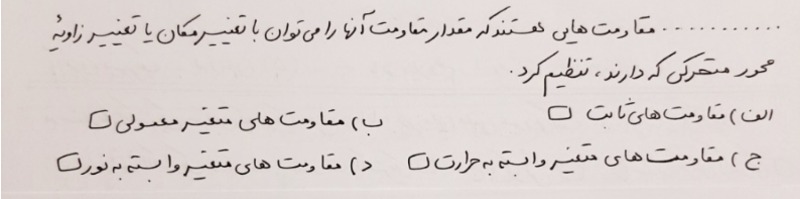 ........... مقاومت هایی هستند که مقدار مقاومت آنها را می توان با تغییر مکان یا تغییر زاویهٔ
محور متحرکی که دارند، تنظیم کرد.
الف) مقاومت های ثابت □ ب) مقاومت های متغیر معمولی □
ج) مقاومت های متغیر وابسته به حرارت □ د) مقاومت های متغیر وابسته به نور □